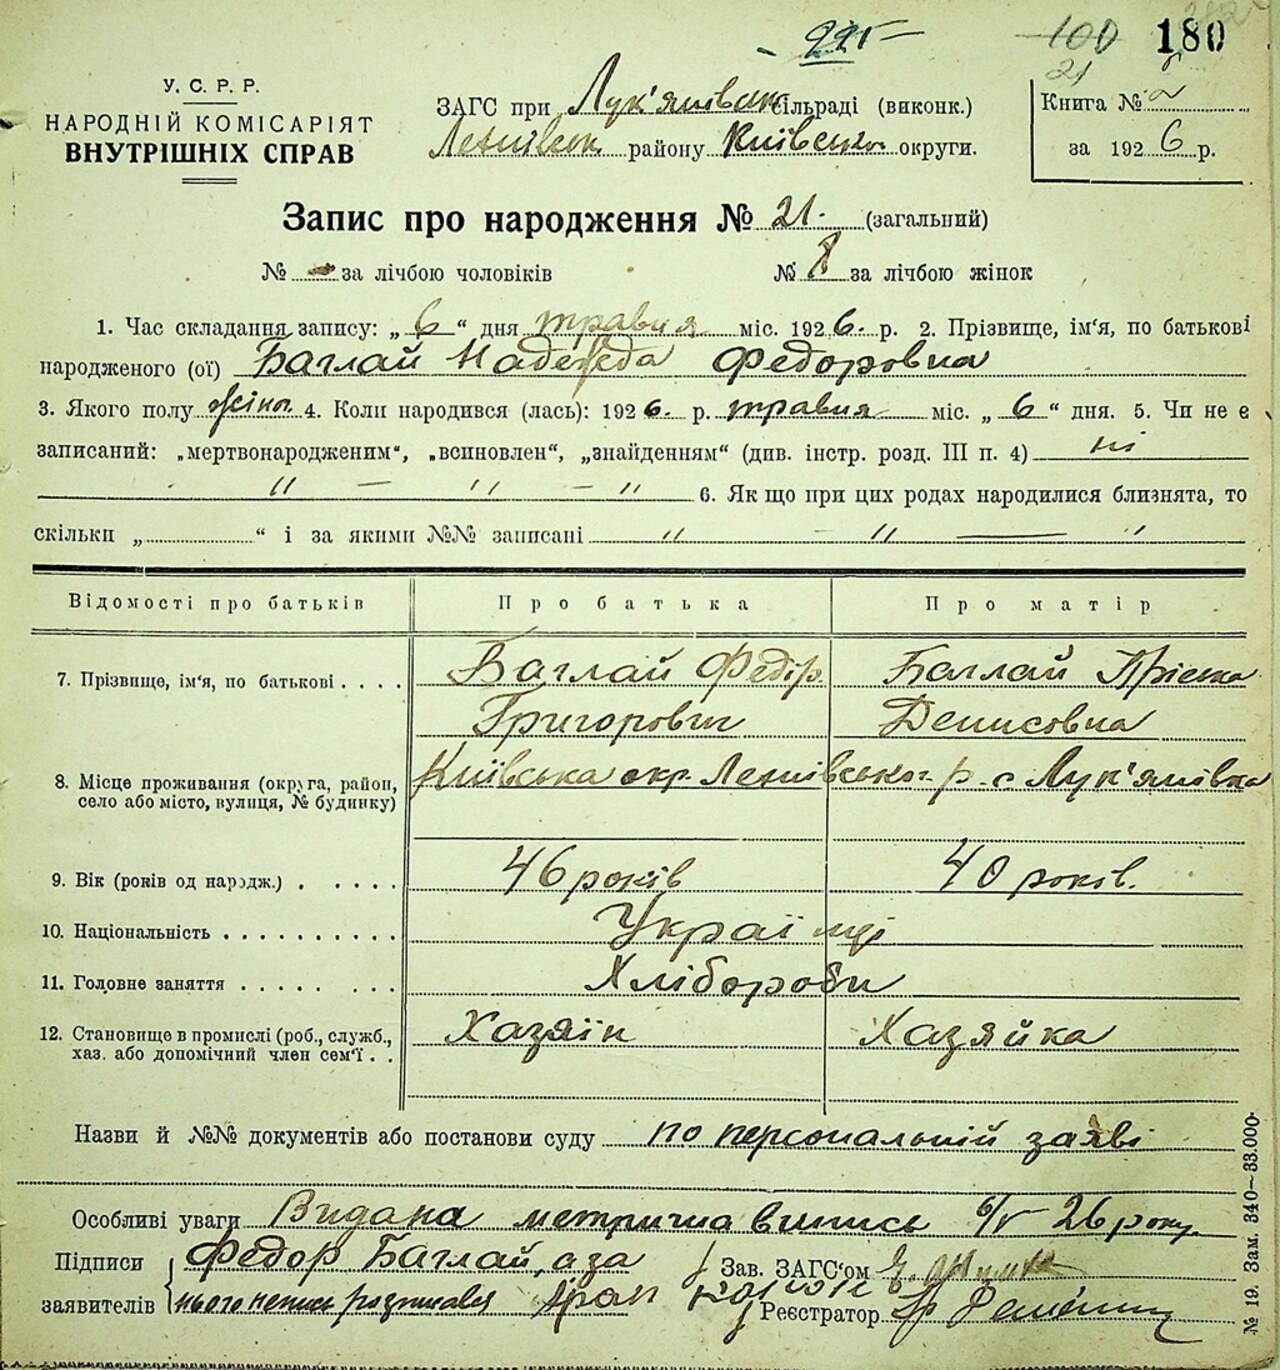 225
100 180
21
У. С. Р. Р.
НАРОДНІЙ КОМІСАРІЯТ
ВНУТРІШНІХ СПРАВ
ЗАГС при Лук'янівськ сільраді (виконк.)
районy Київської округи.
Книга №
за 1926 р.
Запис про народження № 21. (загальний)
№ — за лічбою чоловіків № 8 за лічбою жінок
1. Час складання запису: „6“ дня травня міс. 1926. р. 2. Прізвище, ім'я, по батькові
народженого (ої) Баглай Надежда Федоровна
3. Якого полу жіноч. 4. Коли народився (лась): 1926. р. травня міс. „6“ дня. 5. Чи не є
записаний: „мертвонародженим“, „всиновлен“, „знайденням“ (див. інстр. розд. III п. 4) ні
" — " — " 6. Як що при цих родах народилися близнята, то
скільки „......“ і за якими №№ записані " — " — "
Відомості про батьків Про батька Про матір
7. Прізвище, ім'я, по батькові . . . . Баглай Федір Баглай Пріська
Григорович Денисовна
8. Місце проживання (округа, район, село або місто, вулиця, № будинку) Київська окр. р. с Лук'янівка
9. Вік (років од народж.) . . . . . 46 років 40 років.
10. Національність . . . . . . . . . . Українці
11. Головне заняття . . . . . . . . Хлібороби
12. Становище в промислі (роб., служб., хаз. або допомічний член сем'ї . . Хазяїн Хазяйка
Назви й №№ документів або постанови суду по персональній заяві
Особливі уваги Видана метрична випись 6/V 26 року.
Підписи Федор Баглай, а за Зав. ЗАГС'ом
заявителів нього непись розписався Реєстратор
№ 19. Зам. 340—33.000.